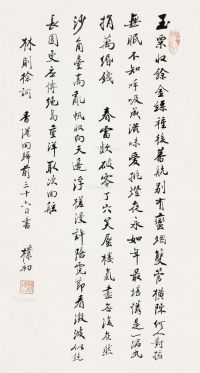 玉粟收餘金絲種後蕃航別有蠻煙雙管橫陳何人對擁
無眠不知呼吸成滋味愛挑燈夜永如年最堪憐是一泥丸
捐萬緡錢 春雷欻破零丁穴笑蜃樓氣盡無復灰然
沙角臺高亂帆收向天邊浮槎漫許陪霓節看澂波似鏡
長圓更應傳絕島重洋取次回舷
林則徐詞 香港回歸前三十六日書 樸初